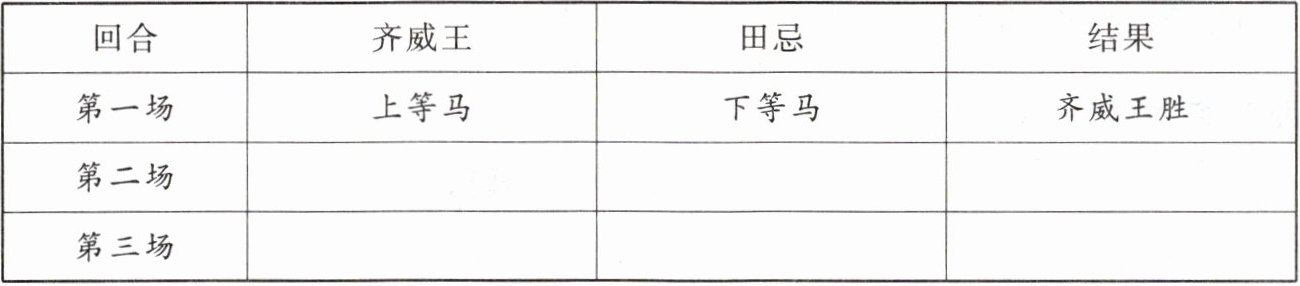 回合 齐威王 田忌 结果
第一场 上等马 下等马 齐威王胜
第二场
第三场